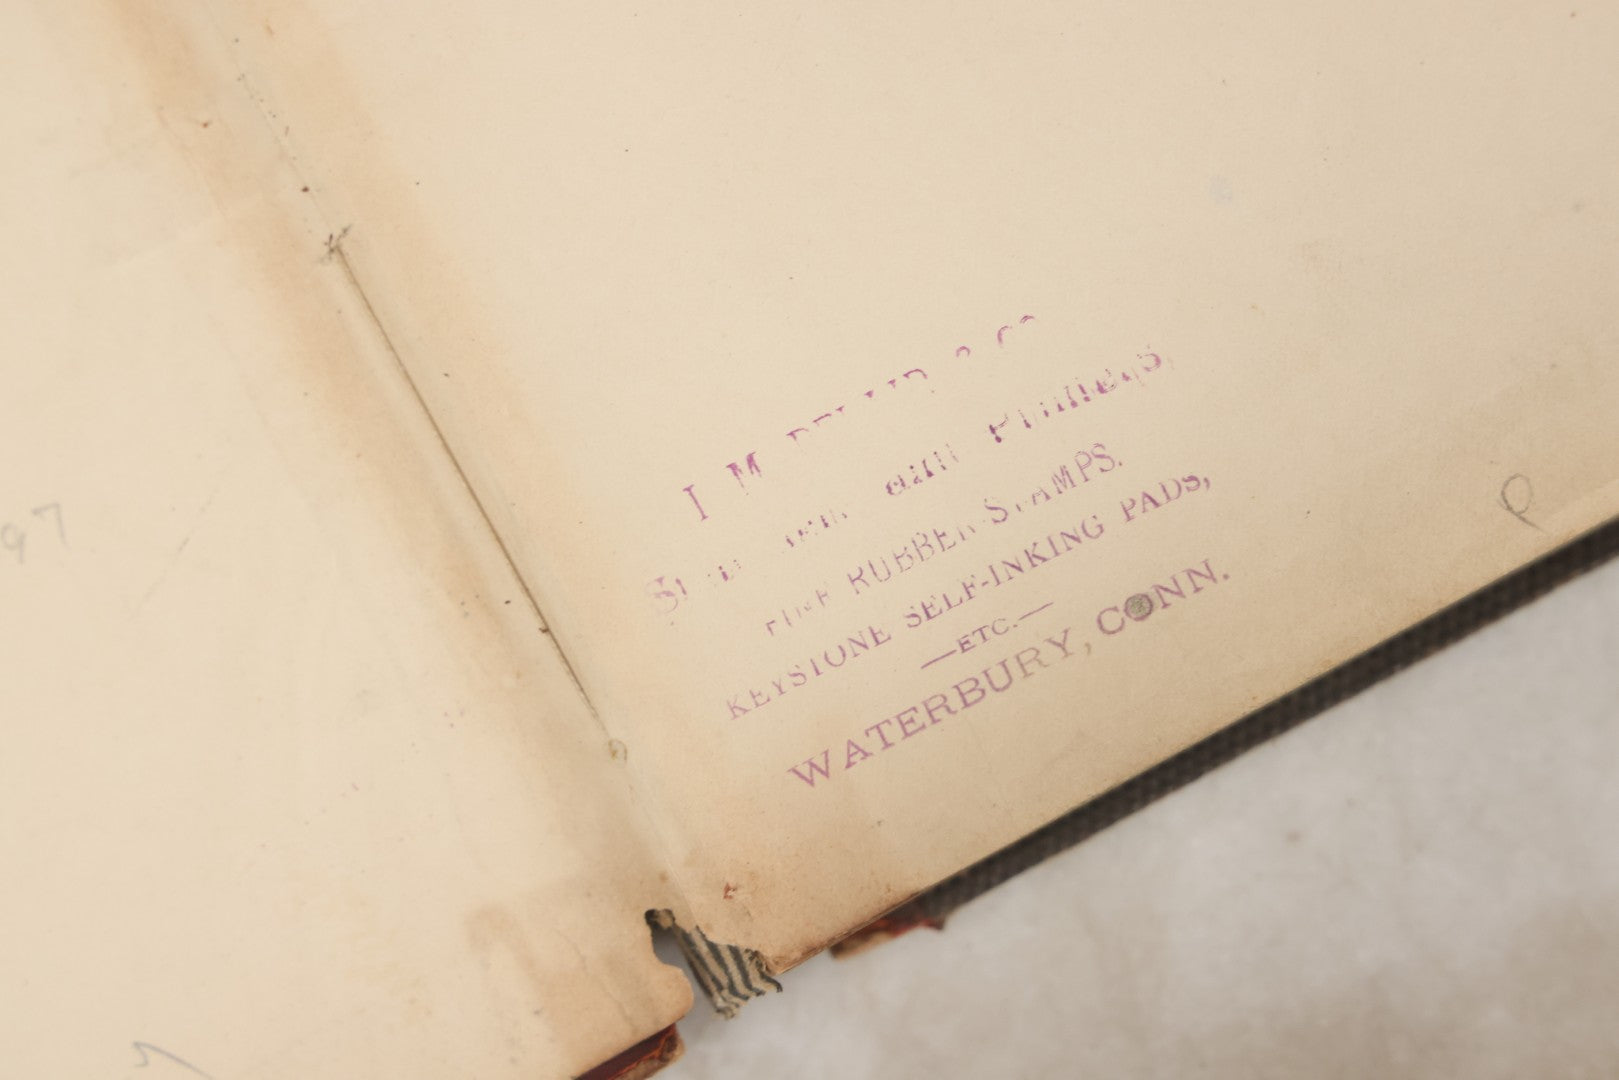 I M & CO
and Printers,
FINE RUBBER STAMPS.
KEYSTONE SELF-INKING PADS,
—ETC.—
WATERBURY, CONN.
97